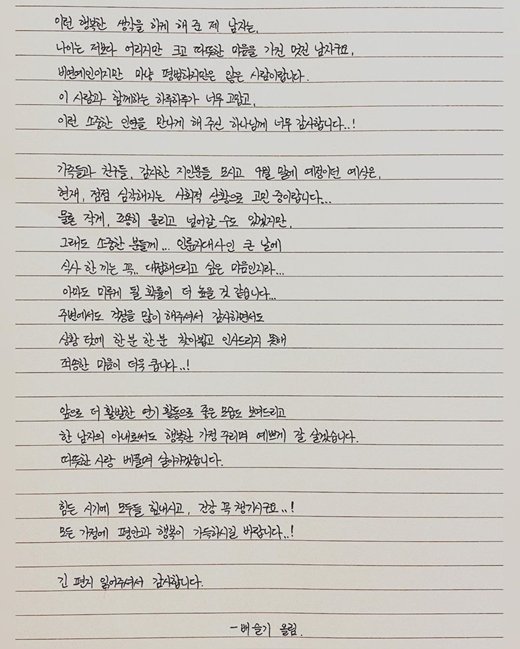 이런 행복한 생각을 하게 해 준 제 남자는,
나이는 저보다 어리지만 크고 따뜻한 마음을 가진 멋진 남자구요,
비연예인이지만 마냥 평범하지만은 않은 사람이랍니다.
이 사람과 함께하는 하루하루가 너무 고맙고,
이런 소중한 인연을 만나게 해 주신 하나님께 너무 감사합니다..!
가족들과 친구들, 감사한 지인분들을 모시고 9월 말에 예정이던 예식은,
현재, 점점 심각해지는 사회적 상황으로 고민 중이랍니다...
물론 작게, 조용히 올리고 넘어갈 수도 있겠지만,
그래도 소중한 분들께... 인륜지대사인 큰 날에
식사 한 끼는 꼭.. 대접해드리고 싶은 마음인지라...
아마도 미루게 될 확률이 더 높을 것 같습니다...
주변에서도 걱정을 많이 해주셔서 감사하면서도
상황 탓에 한분 한분 찾아뵙고 인사드리지 못해
죄송한 마음이 더욱 큽니다..!
앞으로 더 활발한 연기 활동으로 좋은 모습도 보여드리고
한 남자의 아내로써도 행복한 가정 꾸리며 예쁘게 잘 살겠습니다.
따뜻한 사랑 베풀며 살아가겠습니다.
힘든 시기에 모두들 힘내시고, 건강 꼭 챙기시구요..!
모든 가정에 평안과 행복이 가득하시길 바랍니다..!
긴 편지 읽어주셔서 감사합니다.
- 배슬기 올림.